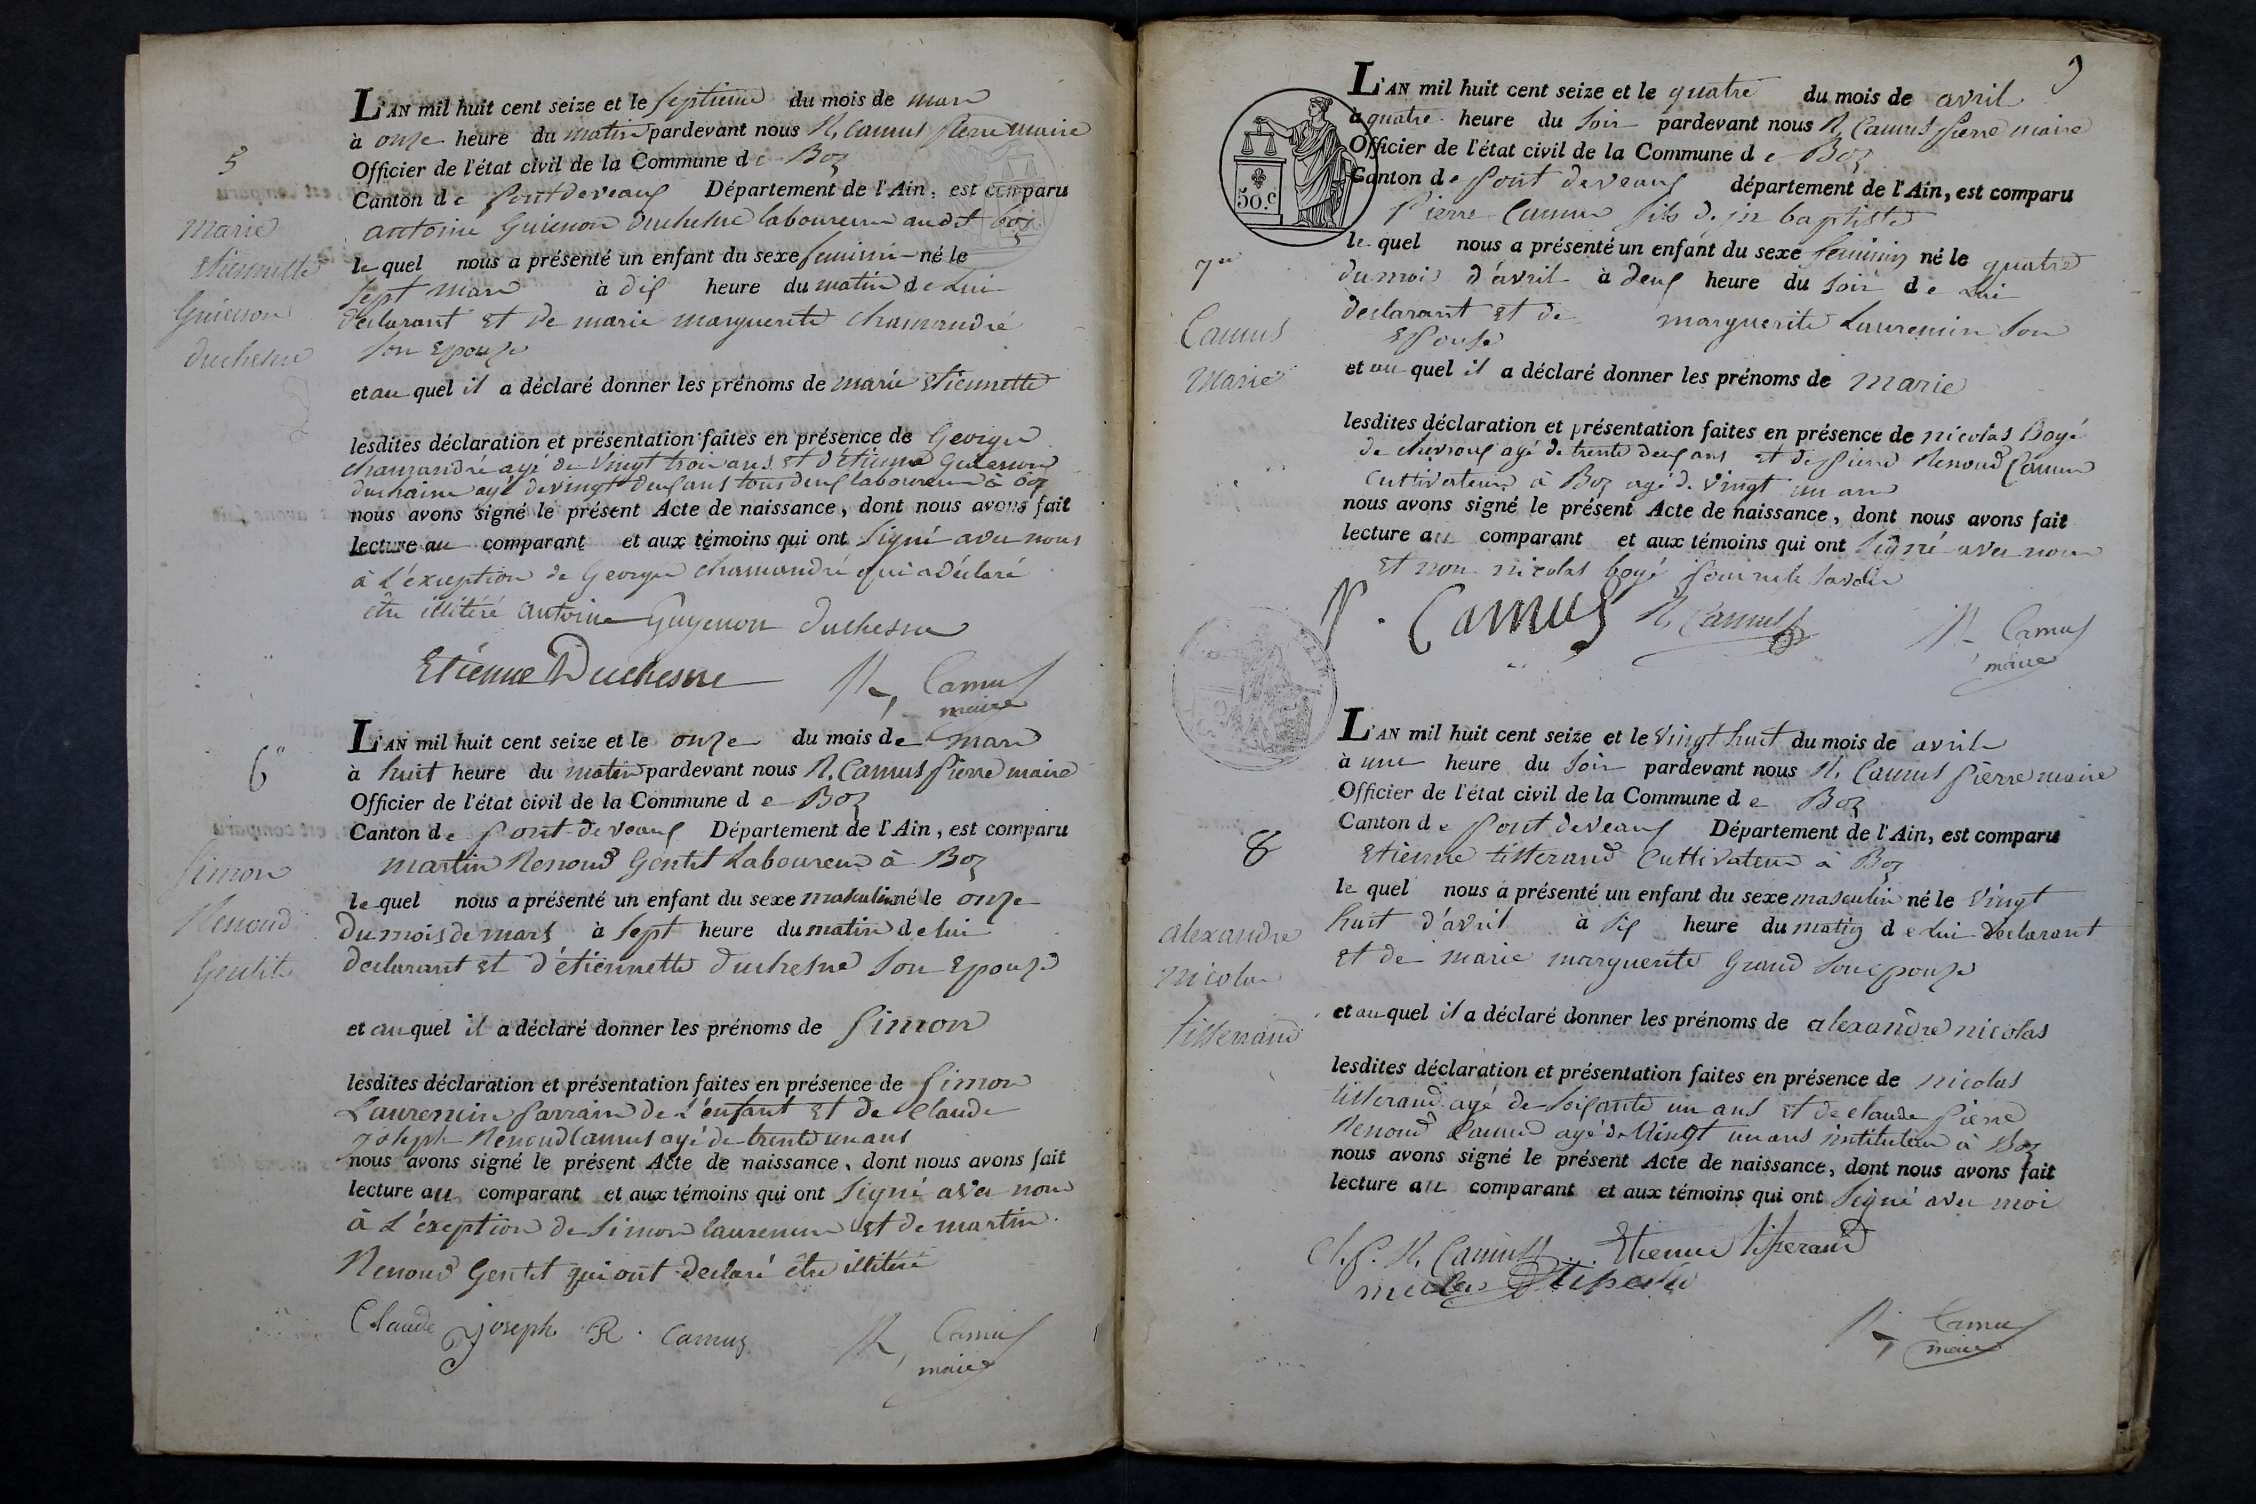 5
Marie
Etiennette
Guienon
duchesne
L'AN mil huit cent seize et le septieme du mois de mars
à onze heure du matin pardevant nous R. Camus pierre maire
Officier de l'état civil de la Commune de Boz
Canton de pontdevaux Département de l'Ain, est comparu
antoine Guienon duchesne laboureur audit boz
lequel nous a présenté un enfant du sexe feminin né le
sept mars à dix heure du matin de Lui
declarant et de marie marguerite chamandré
son Epouze
et au quel il a déclaré donner les prénoms de marie etiennette
lesdites déclaration et présentation faites en présence de George
chamandré agé de vingt trois ans et d'étienne Guienon
duchaine agé de vingt deux ans tous deux laboureur à boz
nous avons signé le présent Acte de naissance, dont nous avons fait
lecture au comparant et aux témoins qui ont signé avec nous
à L'éxception de George chamandré qui a déclaré
être illitéré antoine Guyenon duchesne
Etienne Duchesne R, Camus
maire
6
Simon
Renoud
Gentit
L'AN mil huit cent seize et le onze du mois de mars
à huit heure du matin pardevant nous R. Camus pierre maire
Officier de l'état civil de la Commune de Boz
Canton de pont-devaux Département de l'Ain, est comparu
martin Renoud Gentit Laboureur à Boz
lequel nous a présenté un enfant du sexe masculin né le onze
du mois de mars à sept heure du matin de lui
declarant et d'étiennette duchesne son Epouze
et au quel il a déclaré donner les prénoms de Simon
lesdites déclaration et présentation faites en présence de Simon
Laurencin parrain de L'enfant et de Claude
joseph Renoud Camus agé de trente un ans
nous avons signé le présent Acte de naissance, dont nous avons fait
lecture au comparant et aux témoins qui ont signé avec nous
à L'éxeption de Simon laurencin et de martin
Renoud Gentit qui ont declaré être illitéré
Claude joseph R. Camus R, Camus
maire
50.c
7
Camus
Marie
L'AN mil huit cent seize et le quatre du mois de avril
à quatre heure du soir pardevant nous R. Camus pierre maire
Officier de l'état civil de la Commune de Boz
Canton de pont devaux département de l'Ain, est comparu
Pierre Camus fils de jn baptiste
lequel nous a présenté un enfant du sexe feminin né le quatre
du mois d'avril à deux heure du soir de Lui
declarant et de marguerite Laurencin son
Epouse
et au quel il a déclaré donner les prénoms de marie
lesdites déclaration et présentation faites en présence de nicolas Boyé
de chevroux agé de trente deux ans et de pierre Renoud Camus
cultivateur à Boz agé de vingt un ans
nous avons signé le présent Acte de naissance, dont nous avons fait
lecture au comparant et aux témoins qui ont signé avec nous
et non nicolas boyé pour ne le savoir
P. Camus R. Camus R. Camus
maire
8
alexandre
nicolas
tisserand
L'AN mil huit cent seize et le vingt huit du mois de avril
à une heure du soir pardevant nous R. Camus pierre maire
Officier de l'état civil de la Commune de Boz
Canton de pont devaux Département de l'Ain, est comparu
Etienne tisserand cultivateur à Boz
lequel nous a présenté un enfant du sexe masculin né le vingt
huit d'avril à six heure du matin de lui declarant
et de marie marguerite Grand son epouze
et au quel il a déclaré donner les prénoms de alexandre nicolas
lesdites déclaration et présentation faites en présence de nicolas
tisserand agé de soixante un ans et de claude pierre
Renoud Camus agé de vingt un ans instituteur à Boz
nous avons signé le présent Acte de naissance, dont nous avons fait
lecture au comparant et aux témoins qui ont signé avec moi
Cl. P. R. Camus Etienne tisserand
R, Camus
maire